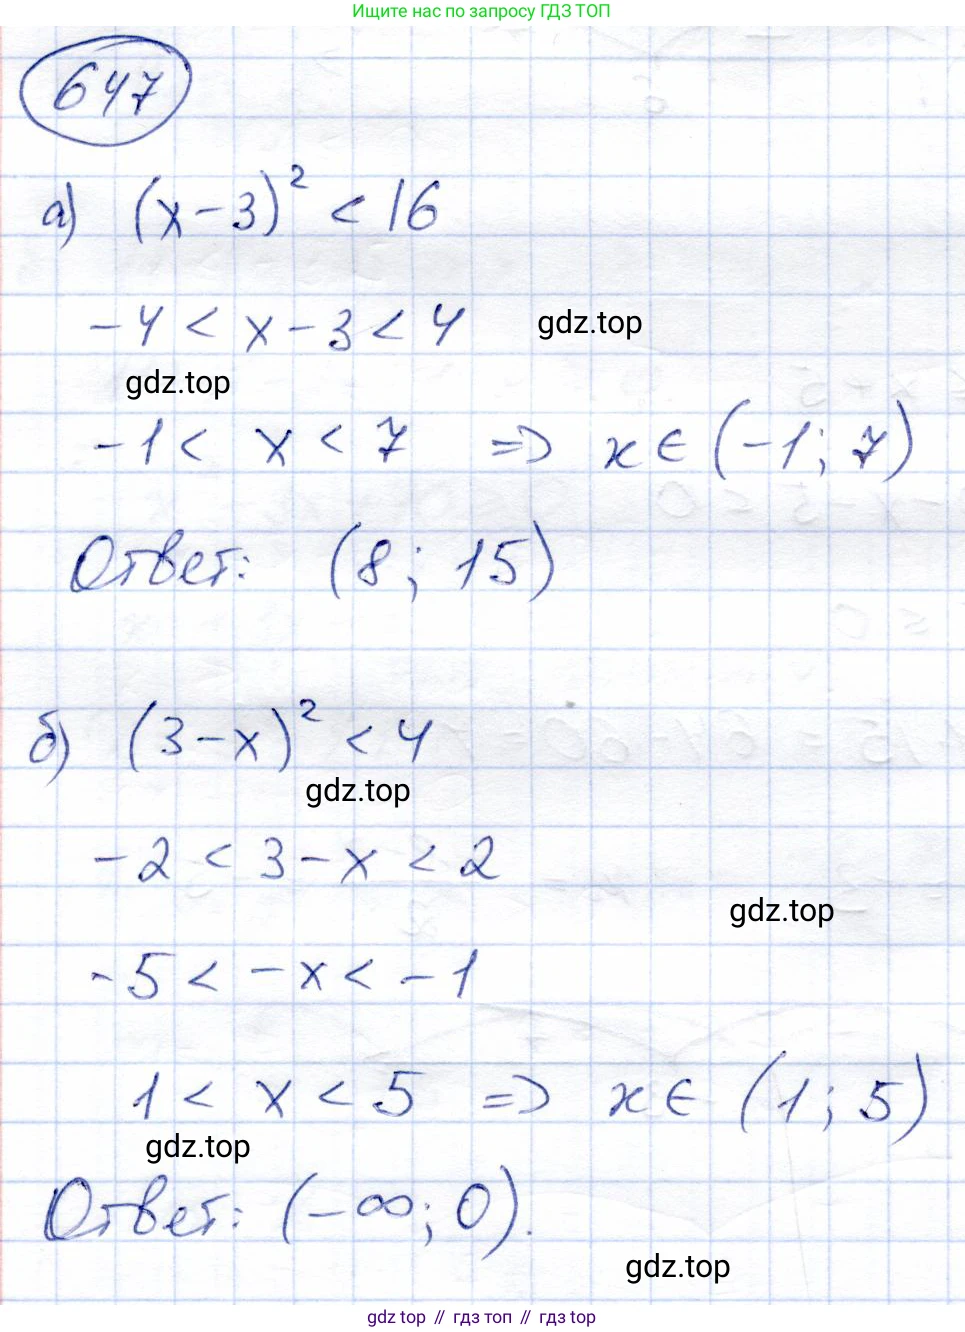 Ищите нас по запросу ГДЗ ТОП
647
а) (x - 3)² < 16
-4 < x - 3 < 4
gdz.top
gdz.top
-1 < x < 7 => x ∈ (-1; 7)
Ответ: (8; 15)
б) (3 - x)² < 4
gdz.top
-2 < 3 - x < 2
gdz.top
-5 < -x < -1
1 < x < 5 => x ∈ (1; 5)
gdz.top
Ответ: (-∞; 0).
gdz.top
gdz top // гдз топ // gdz top